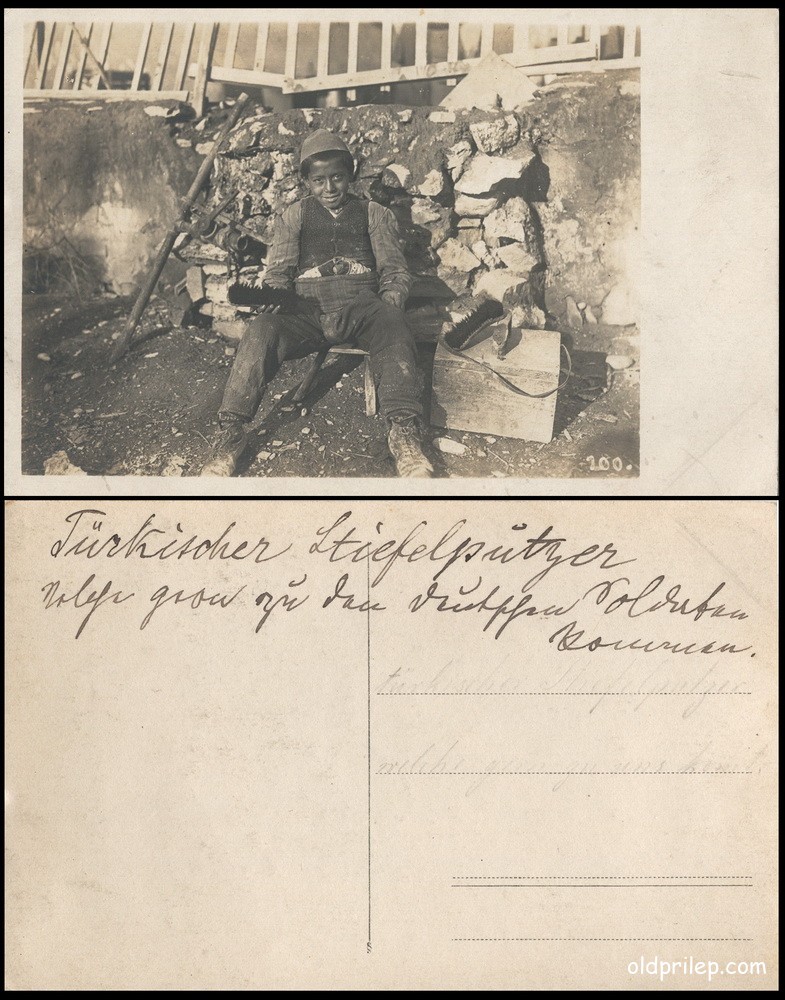 100.
Türkischer Stiefelputzer
welche gern zu den deutschen Soldaten
kommen.
türkischer Stiefelputzer
welche gern zu uns kommt.
oldprilep.com